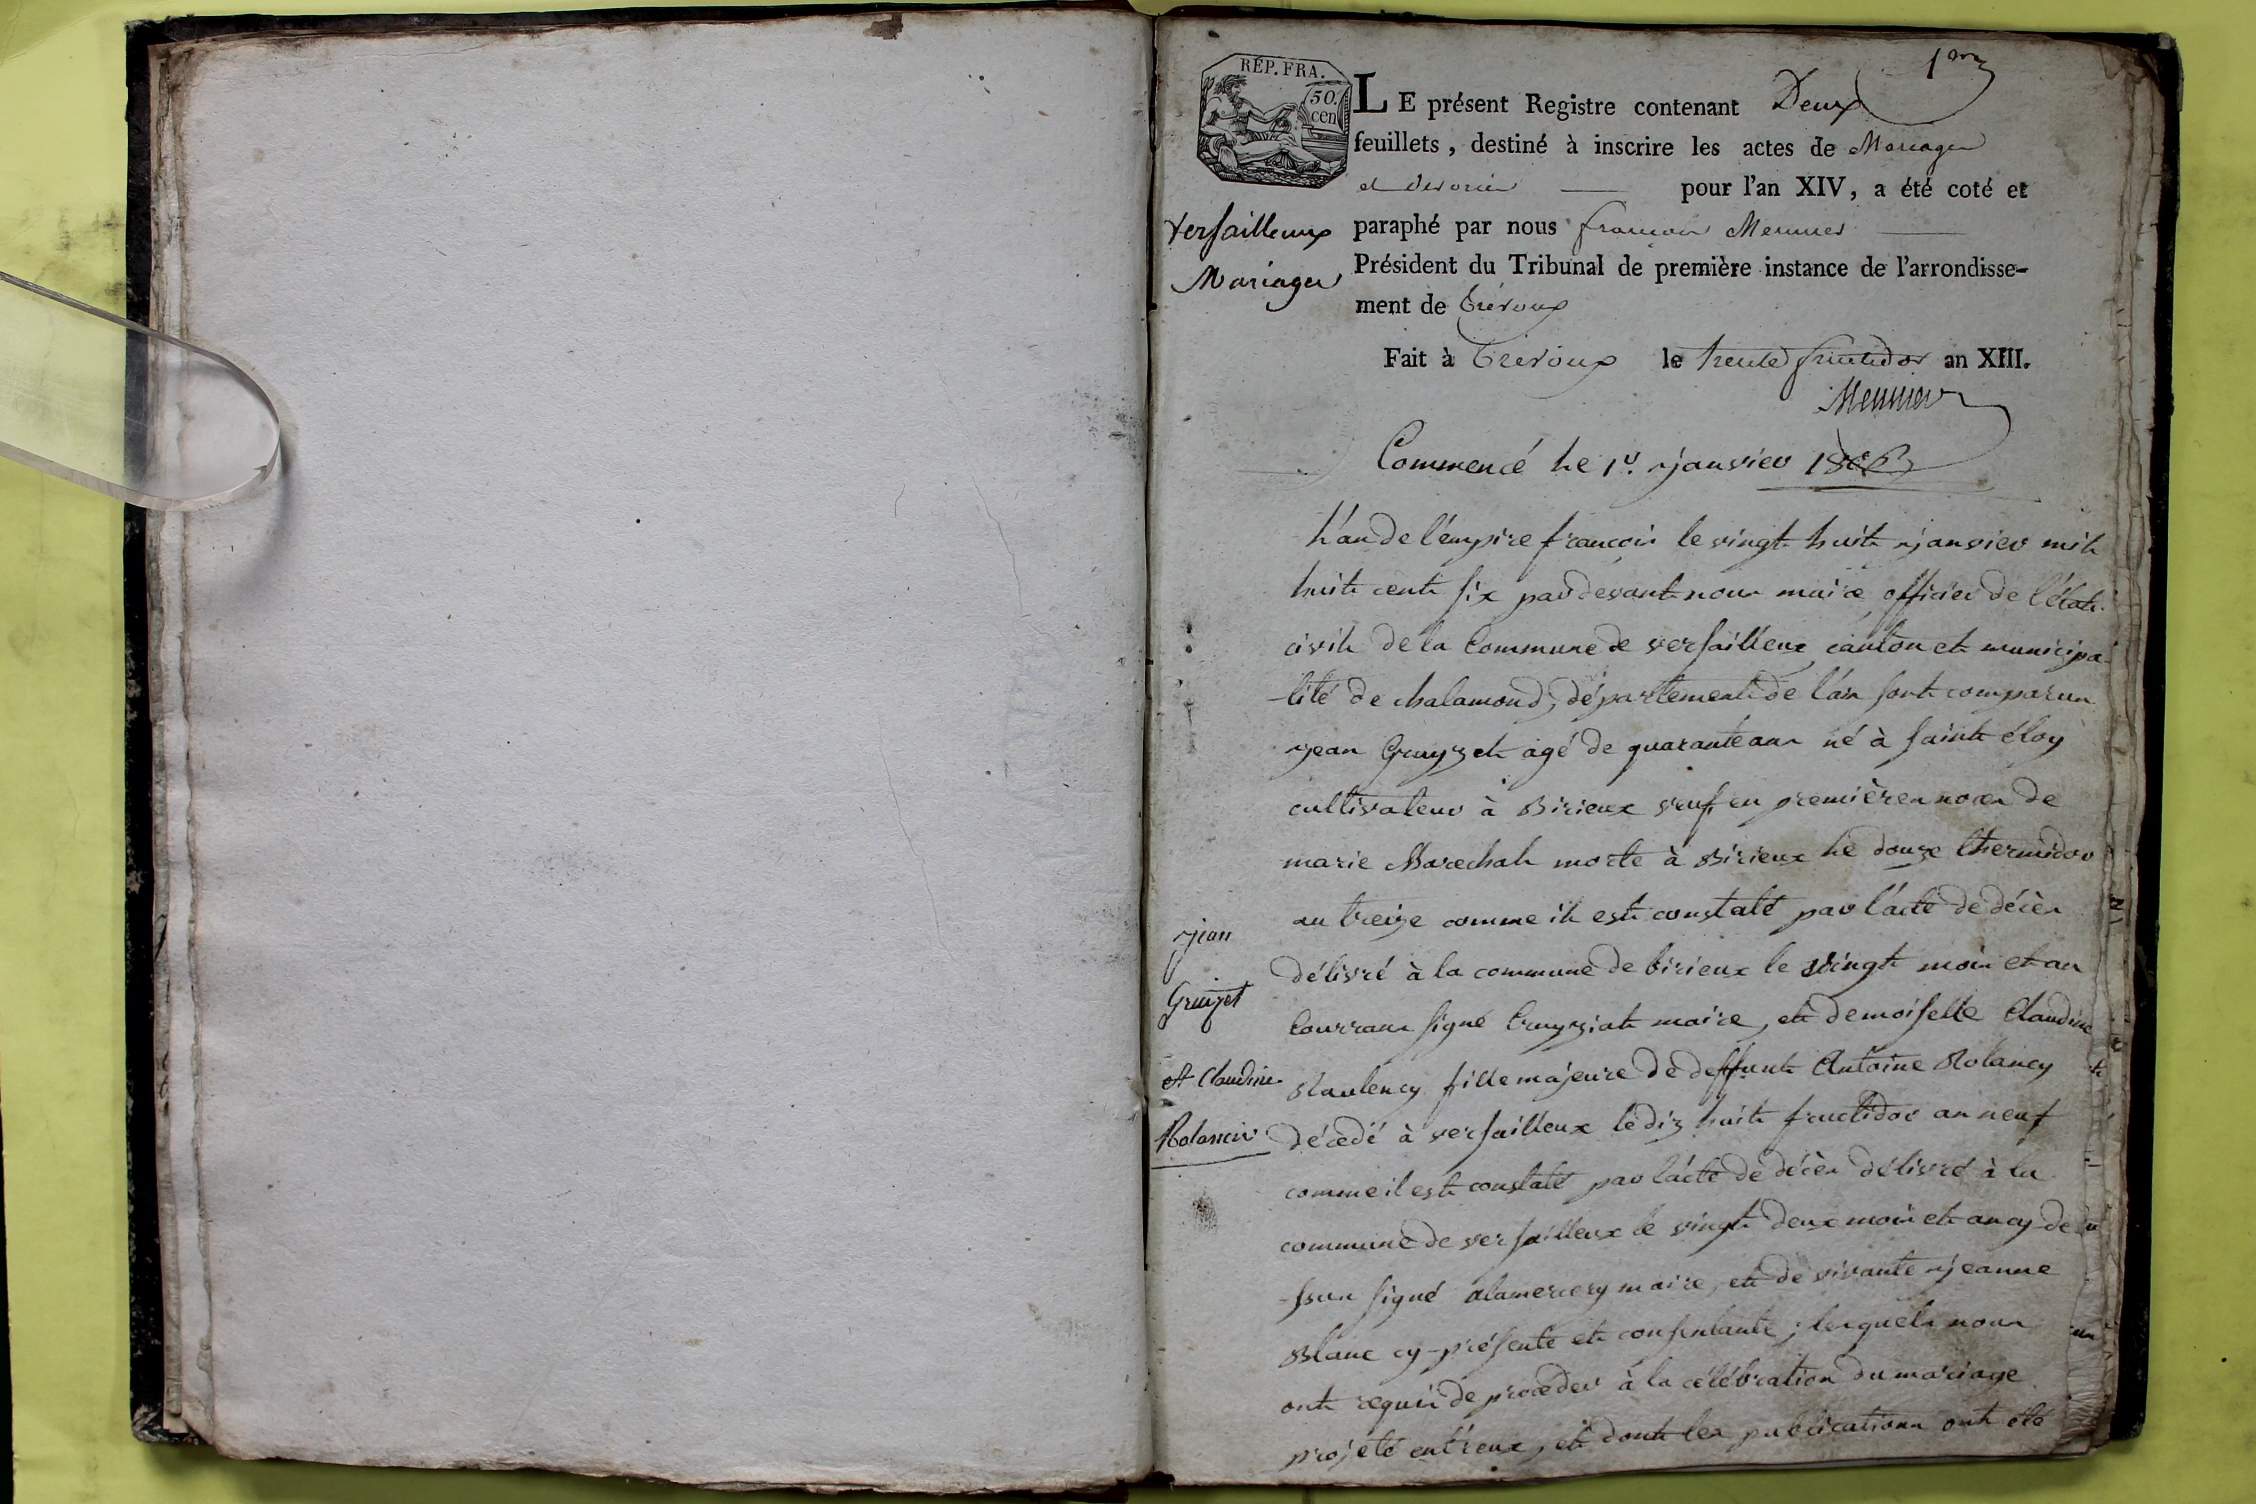 1er
RÉP. FRA.
50.
cen
LE présent Registre contenant Deux
feuillets, destiné à inscrire les actes de Mariages
et divorces pour l'an XIV, a été coté et
Versailleux
paraphé par nous françois Meunier
Mariages
Président du Tribunal de première instance de l'arrondisse-
ment de Trévoux
Fait à Trévoux le trente fructidor an XIII.
Meunier
Commencé le 1er. janvier 1806
L'an de l'empire françois le vingt huit janvier mil
huit cent six pardevant nous maire officier de l'état
civil de la Commune de versailleux canton et municipa-
-lité de chalamond, département de l'ain sont comparus
jean Gruyzet agé de quarante ans né à saint éloy
cultivateur à Birieux veuf en premières noces de
marie Marechal morte à Birieux le douze thermidor
an treize comme il est constaté par l'acte de décès
délivré à la commune de birieux le vingt mois et an
Courrans signé Cruyziat maire, et demoiselle Claudine
Raulency fille majeure de deffunt Antoine Rolancy
décédé à versailleux le dix huit fructidor an neuf
comme il est constaté par l'acte de décès délivré à la
commune de versailleux le vingt deux mois et an cy-de
-ssus signé alamercery maire, et de vivante jeanne
Blanc cy-présente et consentante; lesquels nous
ont requis de proceder à la célébration du mariage
projeté entreux, et dont les publications ont été
jean
Gruizet
et Claudine
Rolancis